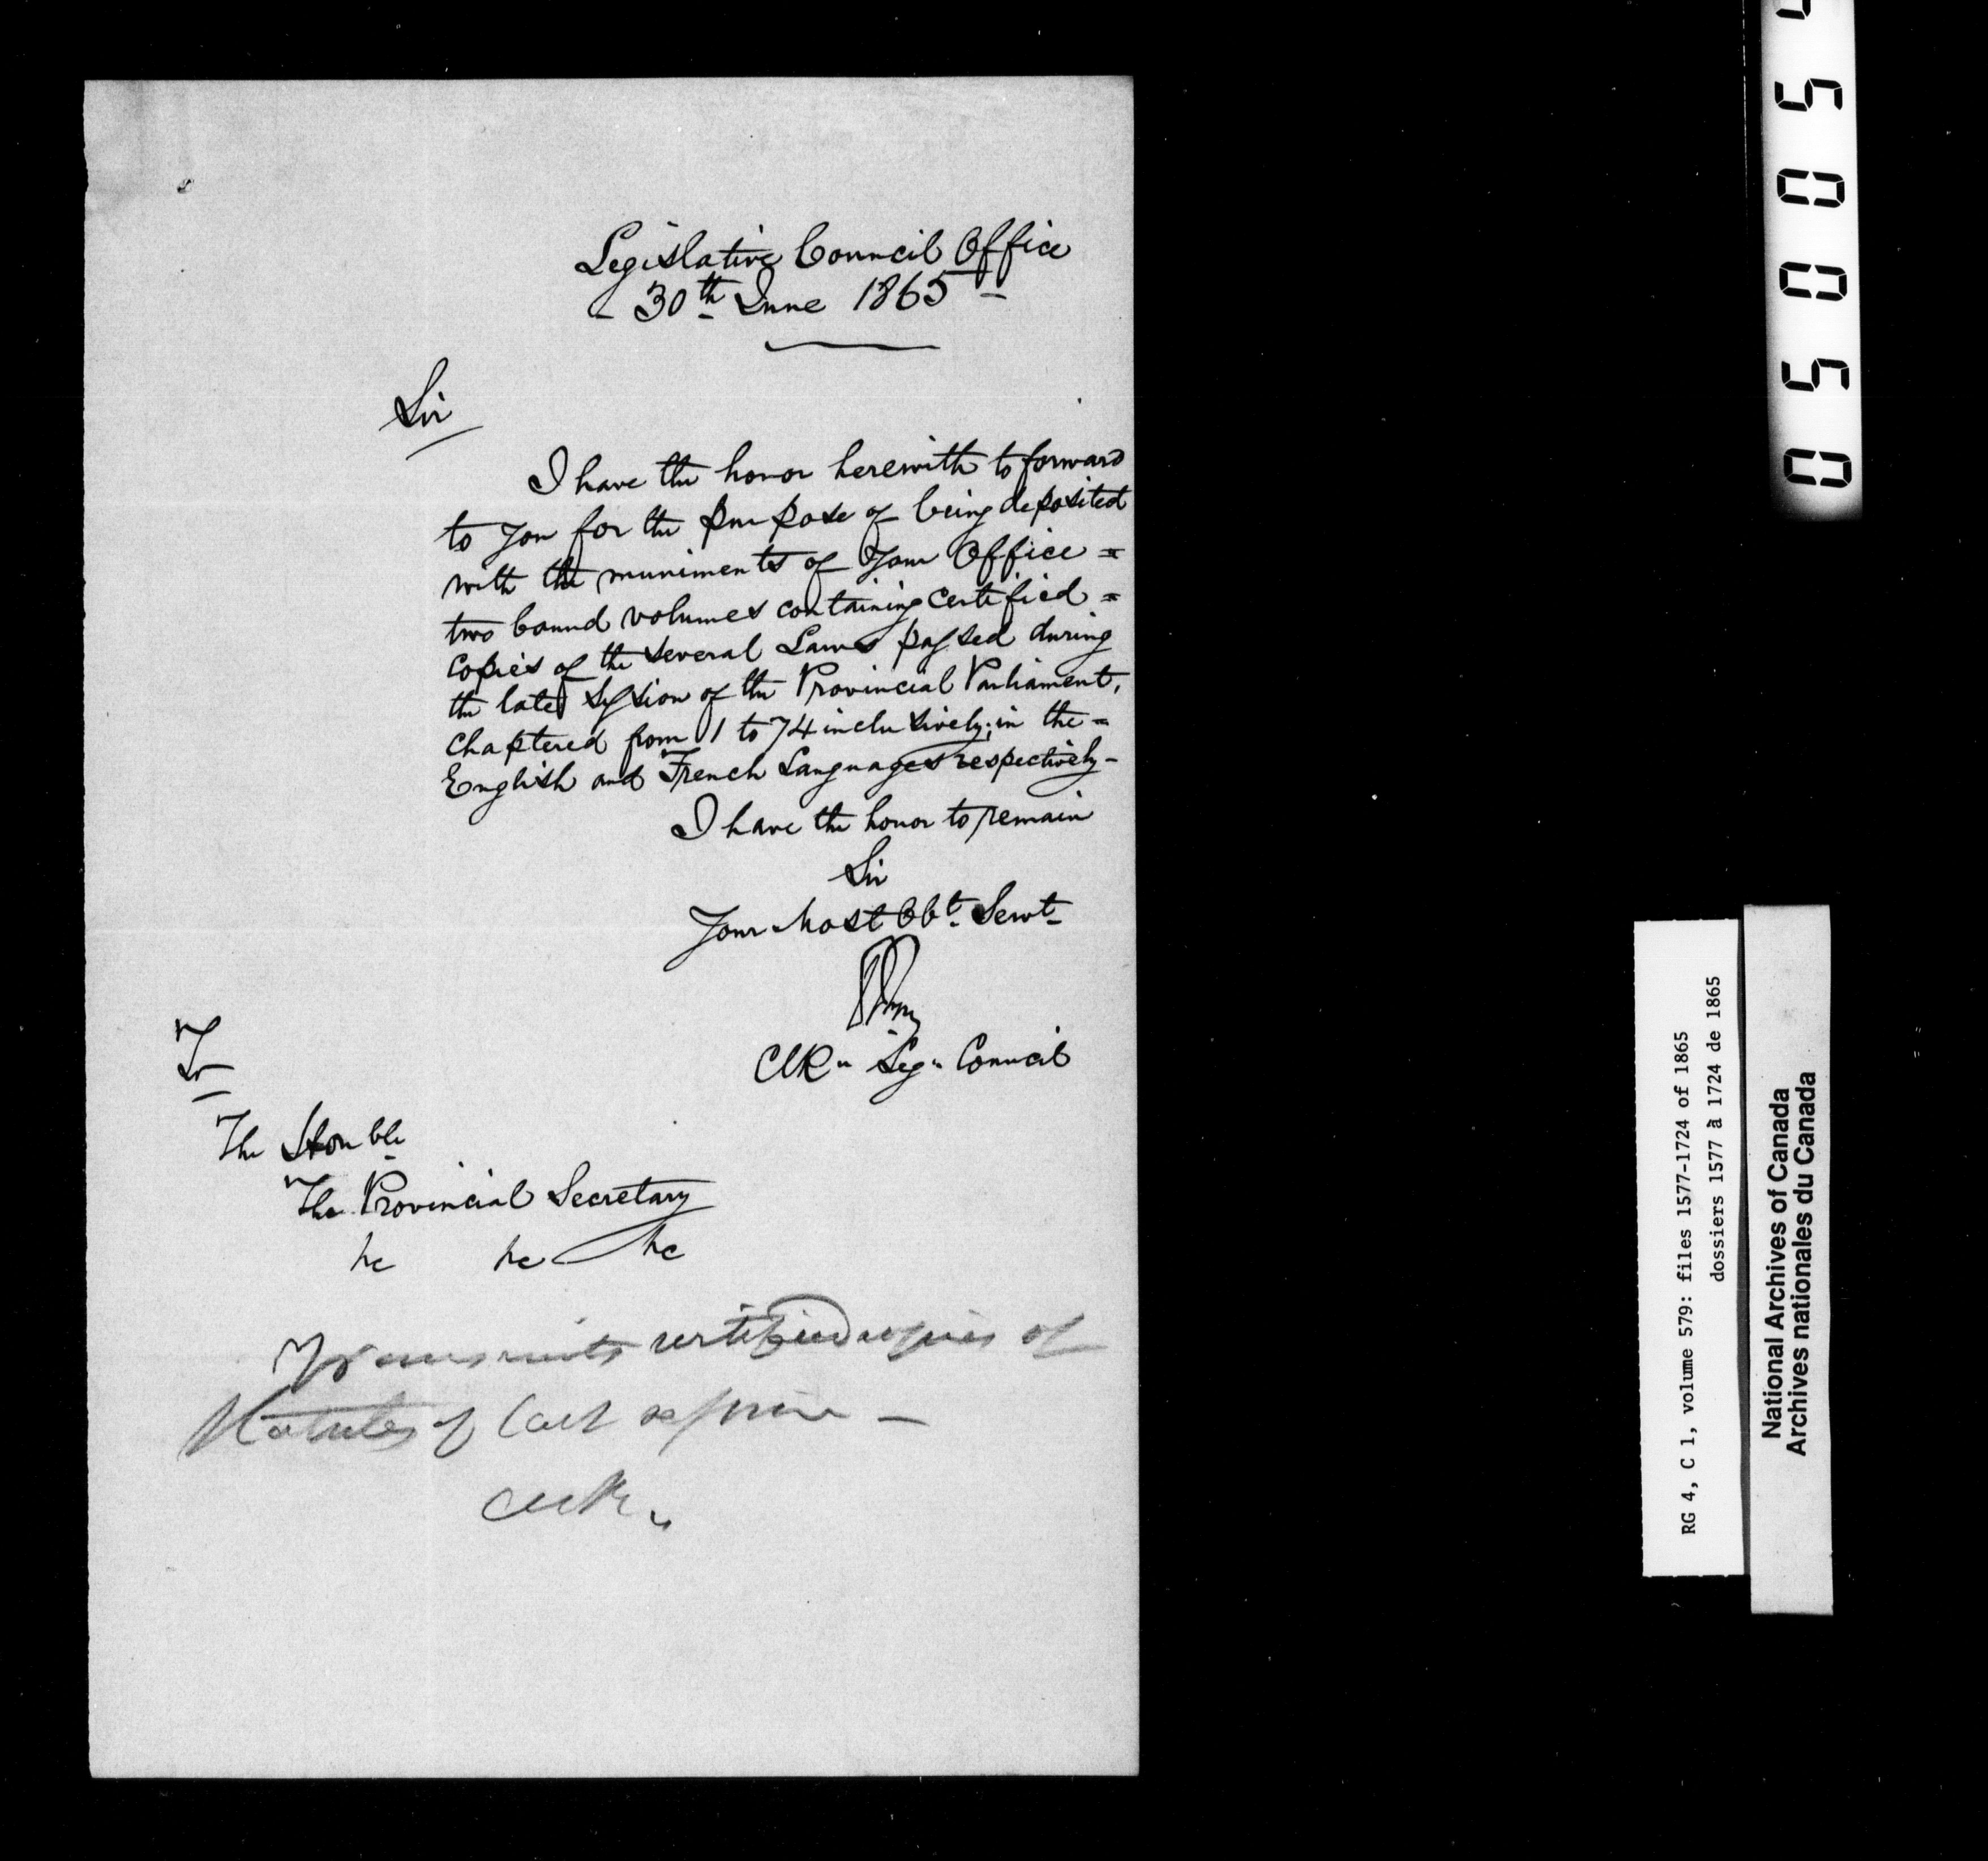 Legislative Council Office
30th June 1865
Sir
I have the honor herewith to forward
to you for the purpose of being deposited
with the muniments of your Office =
two bound volumes containing certified =
copies of the several Laws passed during
the late Session of the Provincial Parliament,
Chaptered from 1 to 74 inclusively; in the =
English and French Languages respectively -
I have the honor to remain
Sir
Your Most Obt. Servt.
Clk " Leg " Council
To
The Honble
The Provincial Secretary
&c &c &c
Transmits certified copies of
Statutes of last session —
RG 4, C 1, volume 579: files 1577-1724 of 1865
dossiers 1577 à 1724 de 1865
National Archives of Canada
Archives nationales du Canada